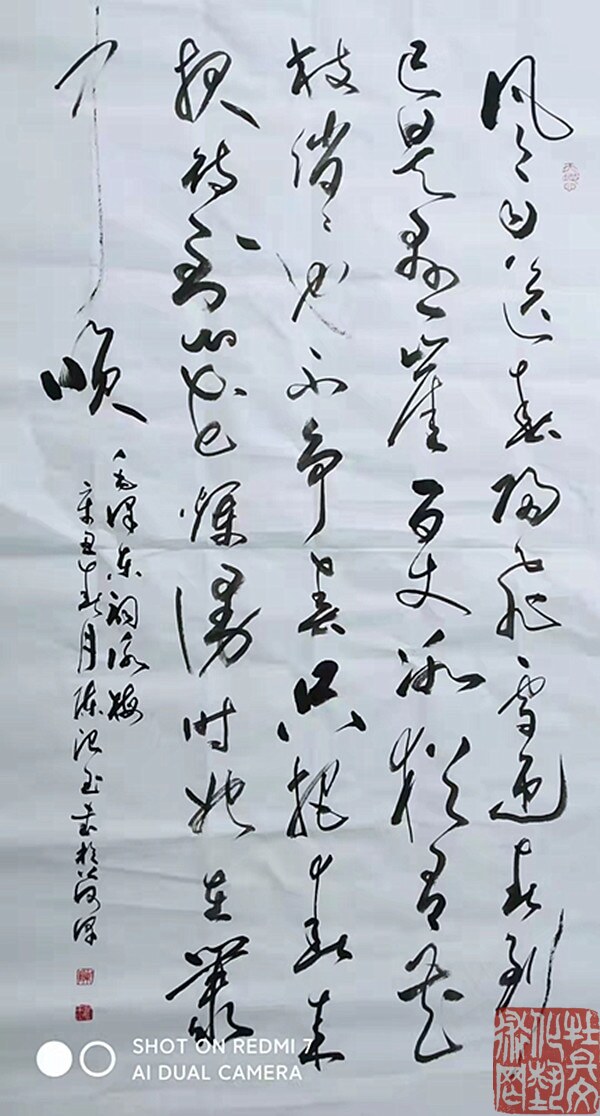 风雨送春归飞雪迎春到
已是悬崖百丈冰犹有花
枝俏俏也不争春只把春来
报待到山花烂漫时她在叢
中笑
毛泽东词咏梅
辛丑春月陈玉书於菏泽
牡丹文化艺术网
SHOT ON REDMI 7
AI DUAL CAMERA